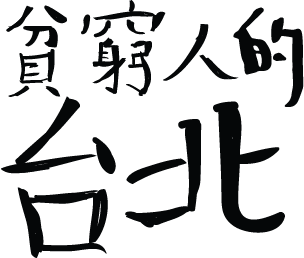 貧窮人的
台北